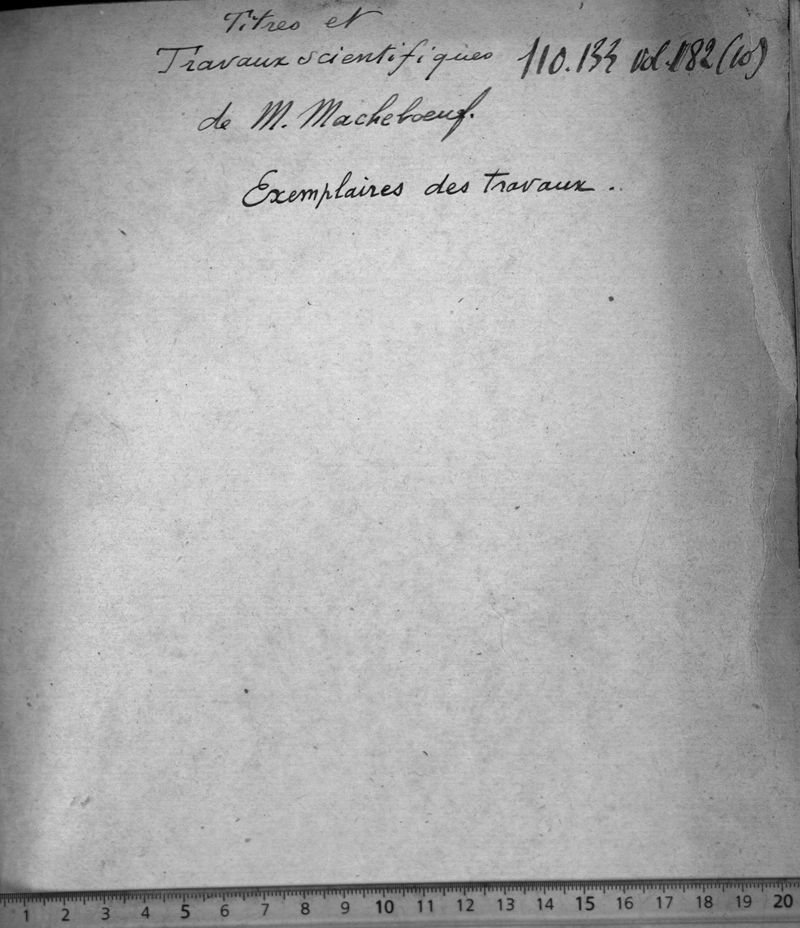 Titres et
Travaux scientifiques 110.133 vol.182 (10)
de M. Macheboeuf.
Exemplaires des travaux.
1 2 3 4 5 6 7 8 9 10 11 12 13 14 15 16 17 18 19 20